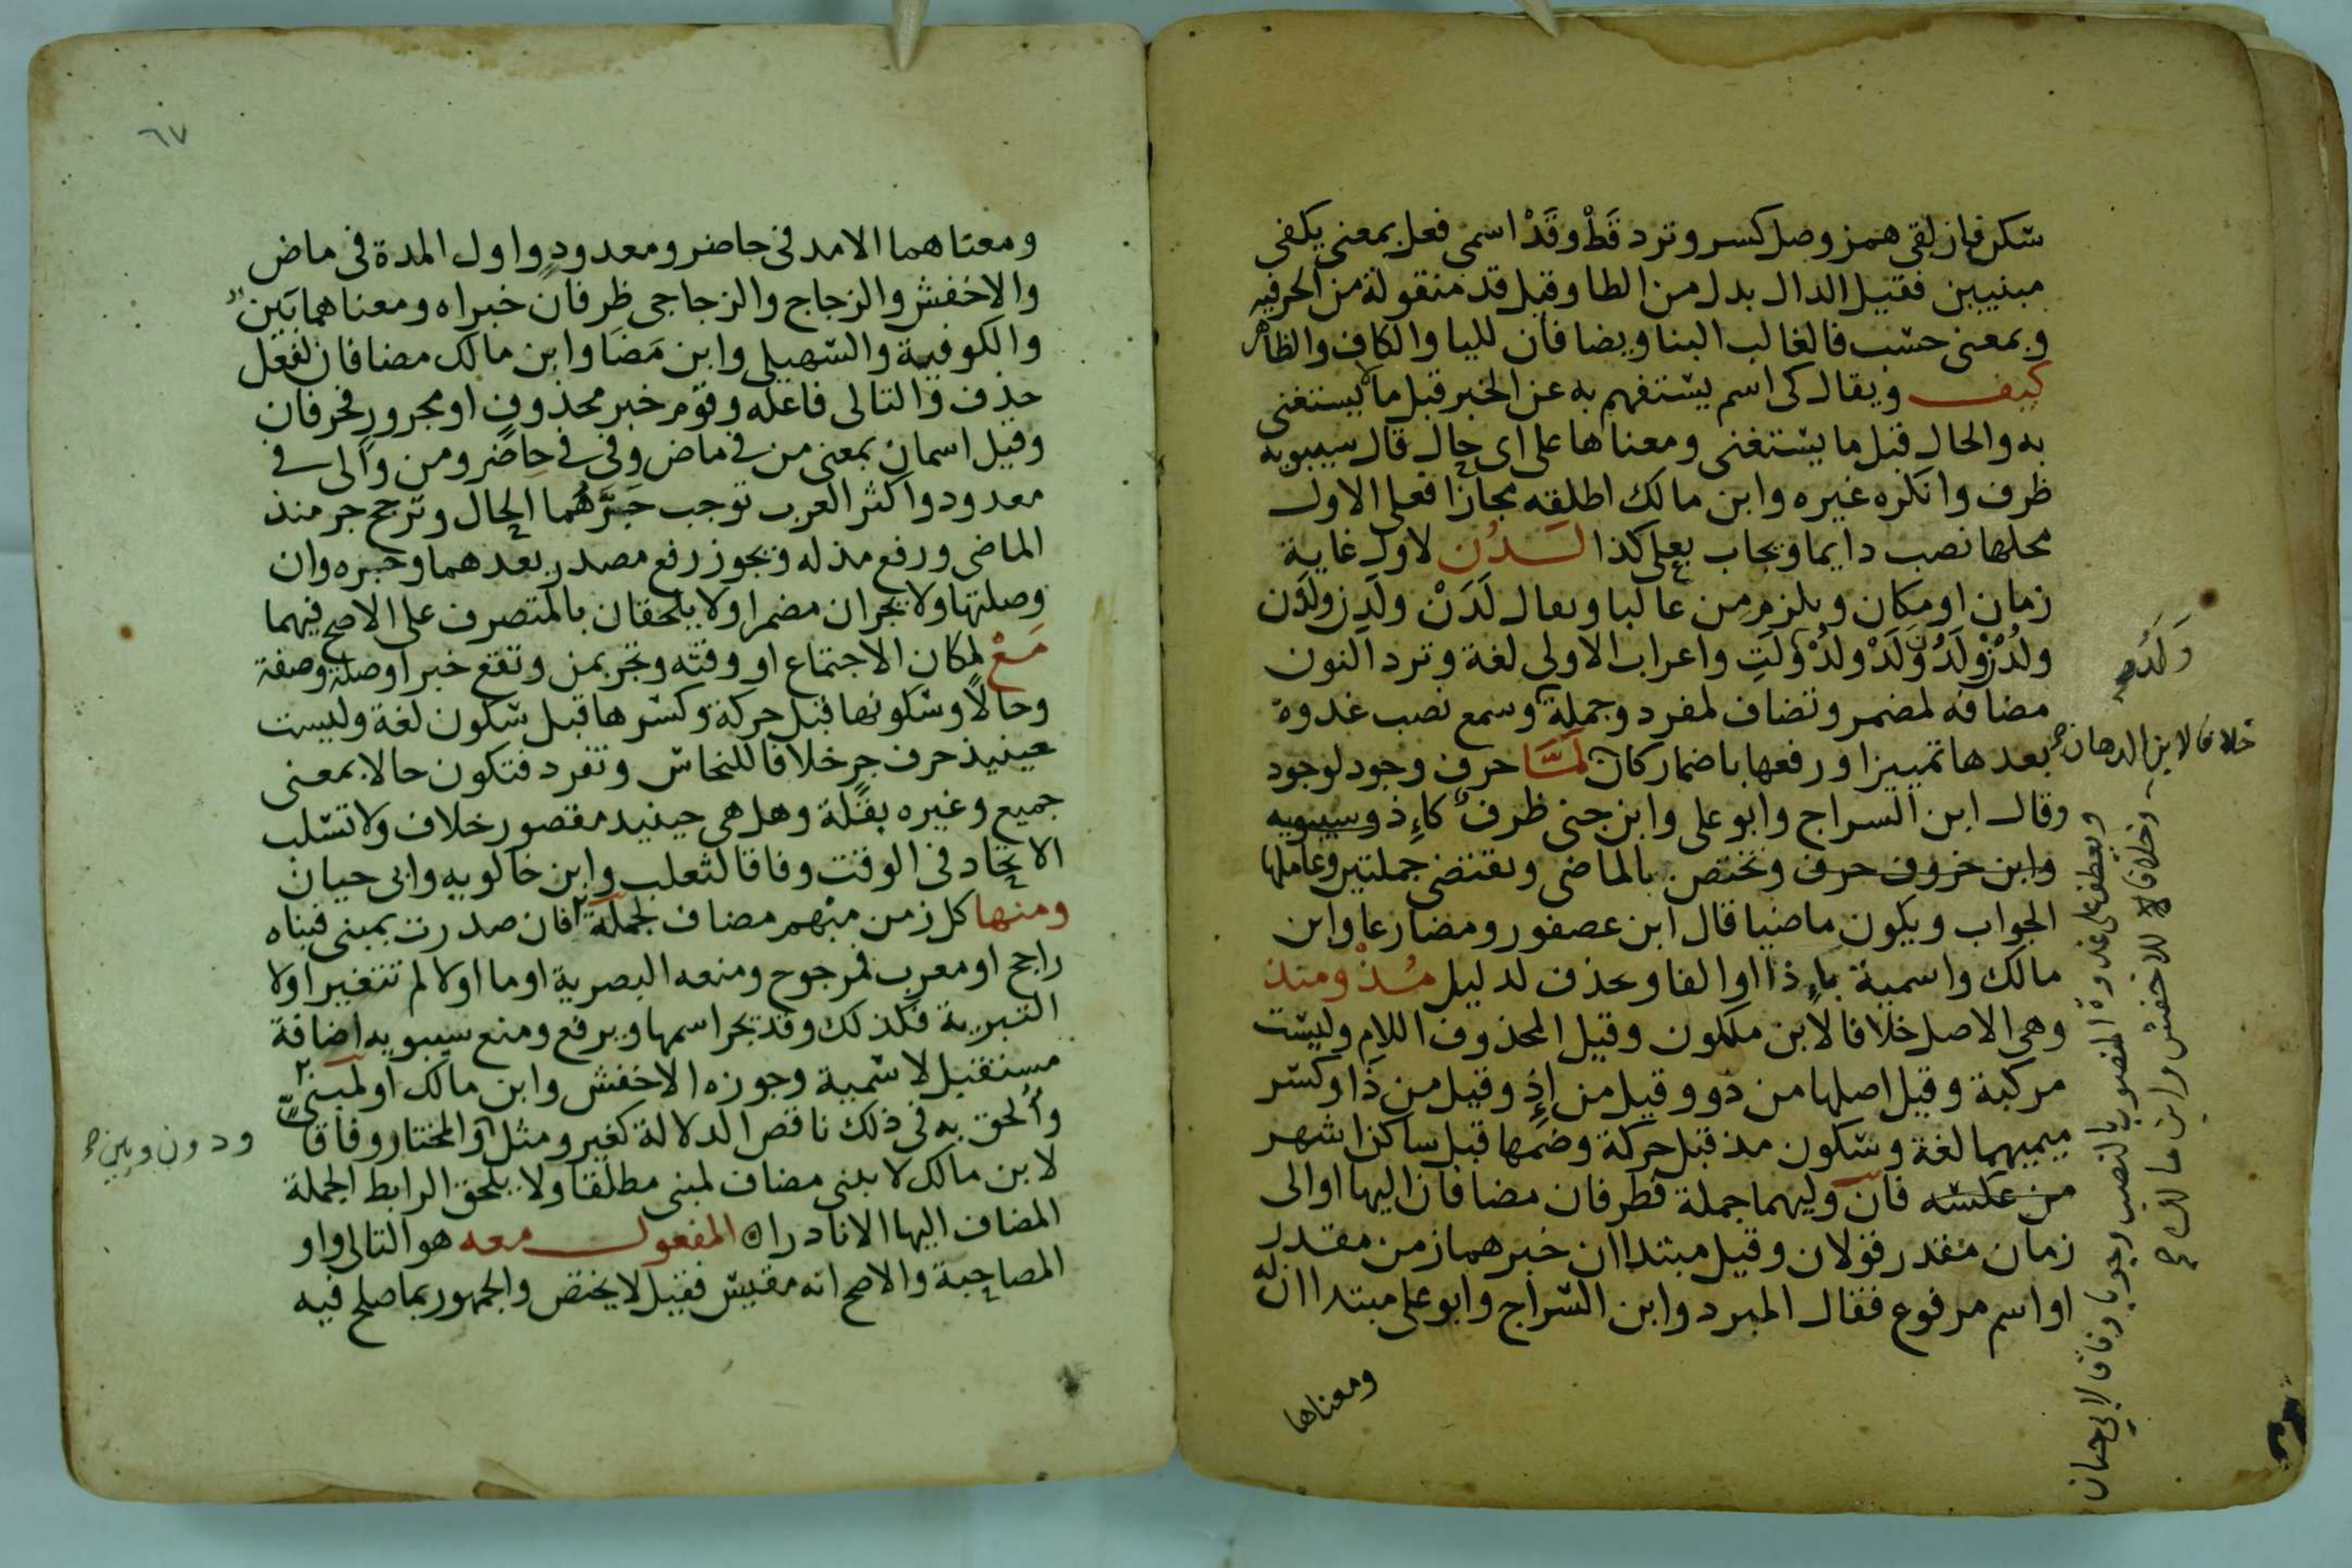 سكر فان لقى همز وصل كسر وترد قَطْ وقَدْ اسمى فعل بمعنى يكفى
مبنيين فقيل الدال بدل من الطا وقيل قد منقولة من الحرفيه
وبمعنى حسب فالغالب البنا ويضافان لليا والكاف والظاهر
كيف ويقال كى اسم يستفهم به عن الخبر قبل ما لا يستغنى
به والحال قبل ما يستغنى ومعناها على اى حال قال سيبويه
ظرف وانكره غيره وابن مالك اطلقه مجازا فعلى الاول
محلها نصب دايما ويجاب بعلى كذا لَدُن لاول غاية
زمان او مكان ويلزم من غالبا ويقال لَدَنْ ولَدِن ولُدْن
ولُدْنِ ولَدُ ولَدْ ولُدْ ولَتِ واعراب الاولى لغة وترد النون
ولُدُ صح
مضافه لمضمر وتضاف لمفرد وجملة وسمع نصب غدوة
خلافا لابن الدهان صح
بعدها تمييزا ورفعها باضمار كان لَمَّا حرف وجود لوجود
وقال ابن السراج وابو على وابن جنى ظرف كاِذ وسيبويه
وابن خروف حرف وتختص بالماضى وتقتضى جملتين وعاملها
الجواب ويكون ماضيا قال ابن عصفور ومضارعا وابن
مالك واسمية باِذا او الفا ويحذف لدليل مُذْ ومنذ
وهى الاصل خلافا لابن ملكون وقيل المحذوف اللام وليست
مركبة وقيل اصلها من ذو وقيل من اِذ وقيل من ذا وكسر
ميميهما لغة وسكون مذ قبل حركة وضمها قبل ساكن اشهر
من عكسه فان وليهما جملة فظرفان مضافان اليها او الى
زمان مقدر قولان وقيل مبتداان خبرهما زمن مقدر
او اسم مرفوع فقال المبرد وابن السراج وابو على مبتداان
ومعناها
ويعطف على غدوة المنصوب بالنصب وجوبا وفاقا لابى حيان
وخلافا للاخفش وابن مالك صح
٦٧
ومعناهما الامد فى حاضر ومعدود واول المدة فى ماض
والاخفش والزجاج والزجاجى ظرفان خبراه ومعناهما بَين
والكوفية والسهيلى وابن مَضَا وابن مالك مضافان لفعل
حذف والتالى فاعله وقوم خبر محذوف او مجرور فحرفان
وقيل اسمان بمعنى من فى ماض وفى فى حاضر ومن والى فى
معدود واكثر العرب توجب جَرَّهُما الحال وترجح جر منذ
الماضى ورفع مذ له ويجوز رفع مصدر بعدهما وجره وان
وصلتها ولا يجران مضمرا ولا يلحقان بالمتصرف على الاصح فيهما
مَعْ لمكان الاجتماع او وقته وتجر بمن وتقع خبرا وصلة وصفة
وحالا وسكونها قبل حركة وكسرها قبل سكون لغة وليست
حينيذ حرف جر خلافا للنحاس وتفرد فتكون حالا بمعنى
جميع وغيره بقلة وهل هى حينيد مقصور خلاف ولا تسلب
الاتحاد فى الوقت وفاقا لثعلب وابن خالويه وابى حيان
ومنها كل زمن مبهم مضاف لجملة فان صدرت بمبنى فبناه
راجح او معرب فمرجوح ومنعه البصرية او ما اولا لم تتغير او لا
التبرية فكذلك وقد يجر اسمها ويرفع ومنع سيبويه اضافة
مستقبل لاسمية وجوزه الاخفش وابن مالك او لمبنى
وأُلحق به فى ذلك ناقص الدلالة كغير ومثل والمختار وفاقا
ودون وبين صح
لابن مالك لا يبنى مضاف لمبنى مطلقا ولا يلحق الرابط الجملة
المضاف اليها الا نادرا ه المفعول معه هو التالى واو
المصاحبة والاصح انه مقيس فقيل لا يختص والجمهور بما صلح فيه